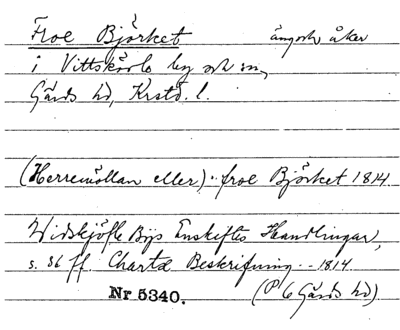 Froe Björket ängoch åker
i Vittskövle by och sn,
Gärds hd, Krstd. l.
(Herremöllan eller) .. froe Björket 1814
Widskjöfle Bys Enskiftes Handlingar,
s. 36 ff. Charta Beskrifning .. 1814.
Nr 5340. (P 6 Gärds hd)